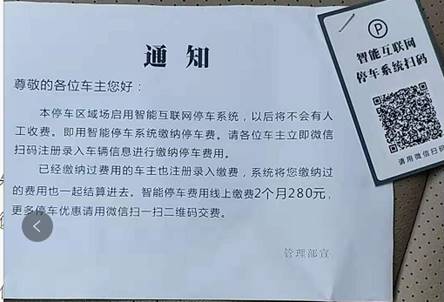 通知
尊敬的各位车主您好：
本停车区域场启用智能互联网停车系统，以后将不会有人
工收费。即用智能停车系统缴纳停车费。请各位车主立即微信
扫码注册录入车辆信息进行缴纳停车费用。
已经缴纳过费用的车主也注册录入缴费，系统将您缴纳过
的费用也一起结算进去。智能停车费用线上缴费2个月280元，
更多停车优惠请用微信扫一扫二维码交费。
管理部宣
P
智能互联网
停车系统扫码
请用微信扫码